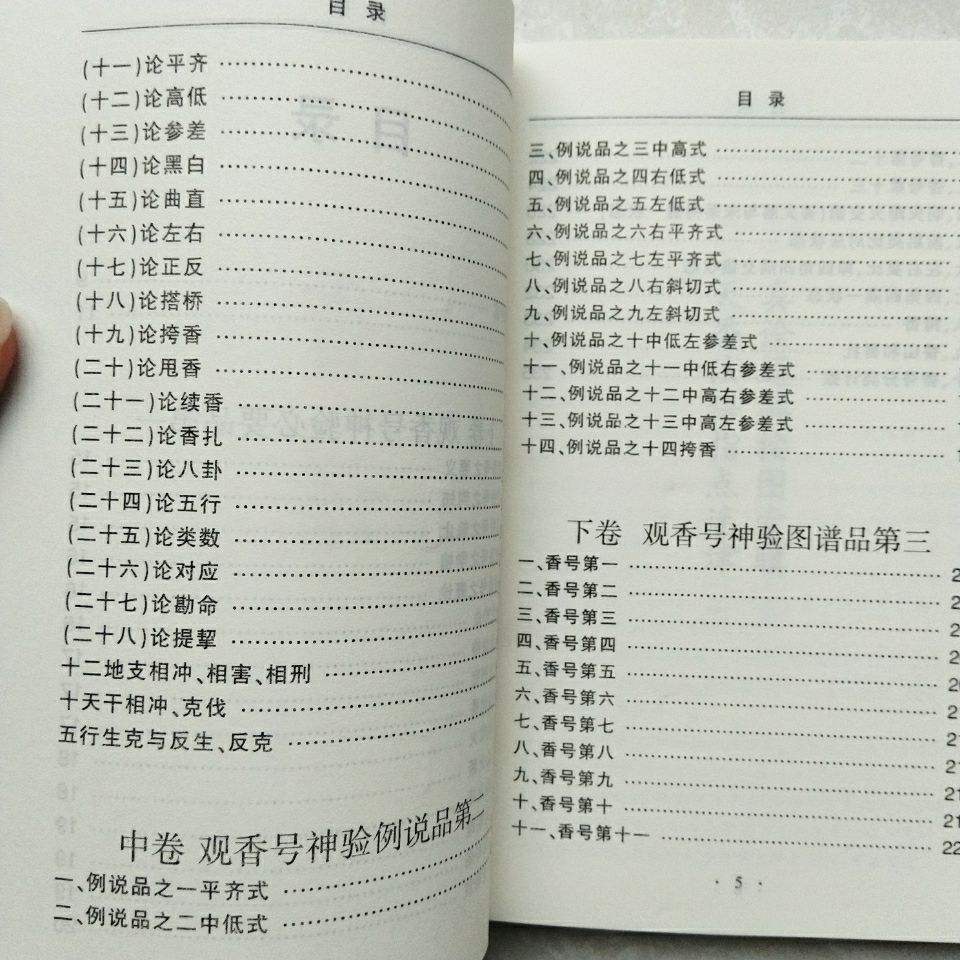 目录
(十一)论平齐
(十二)论高低
(十三)论参差
(十四)论黑白
(十五)论曲直
(十六)论左右
(十七)论正反
(十八)论搭桥
(十九)论挎香
(二十)论甩香
(二十一)论续香
(二十二)论香扎
(二十三)论八卦
(二十四)论五行
(二十五)论类数
(二十六)论对应
(二十七)论勘命
(二十八)论提挈
十二地支相冲、相害、相刑
十天干相冲、克伐
五行生克与反生、反克
中卷 观香号神验例说品第二
一、例说品之一平齐式
二、例说品之二中低式
目录
三、例说品之三中高式
四、例说品之四右低式
五、例说品之五左低式
六、例说品之六右平齐式
七、例说品之七左平齐式
八、例说品之八右斜切式
九、例说品之九左斜切式
十、例说品之十中低左参差式
十一、例说品之十一中低右参差式
十二、例说品之十二中高右参差式
十三、例说品之十三中高左参差式
十四、例说品之十四挎香
下卷 观香号神验图谱品第三
一、香号第一
二、香号第二
三、香号第三
四、香号第四
五、香号第五
六、香号第六
七、香号第七
八、香号第八
九、香号第九
十、香号第十
十一、香号第十一
· 5 ·